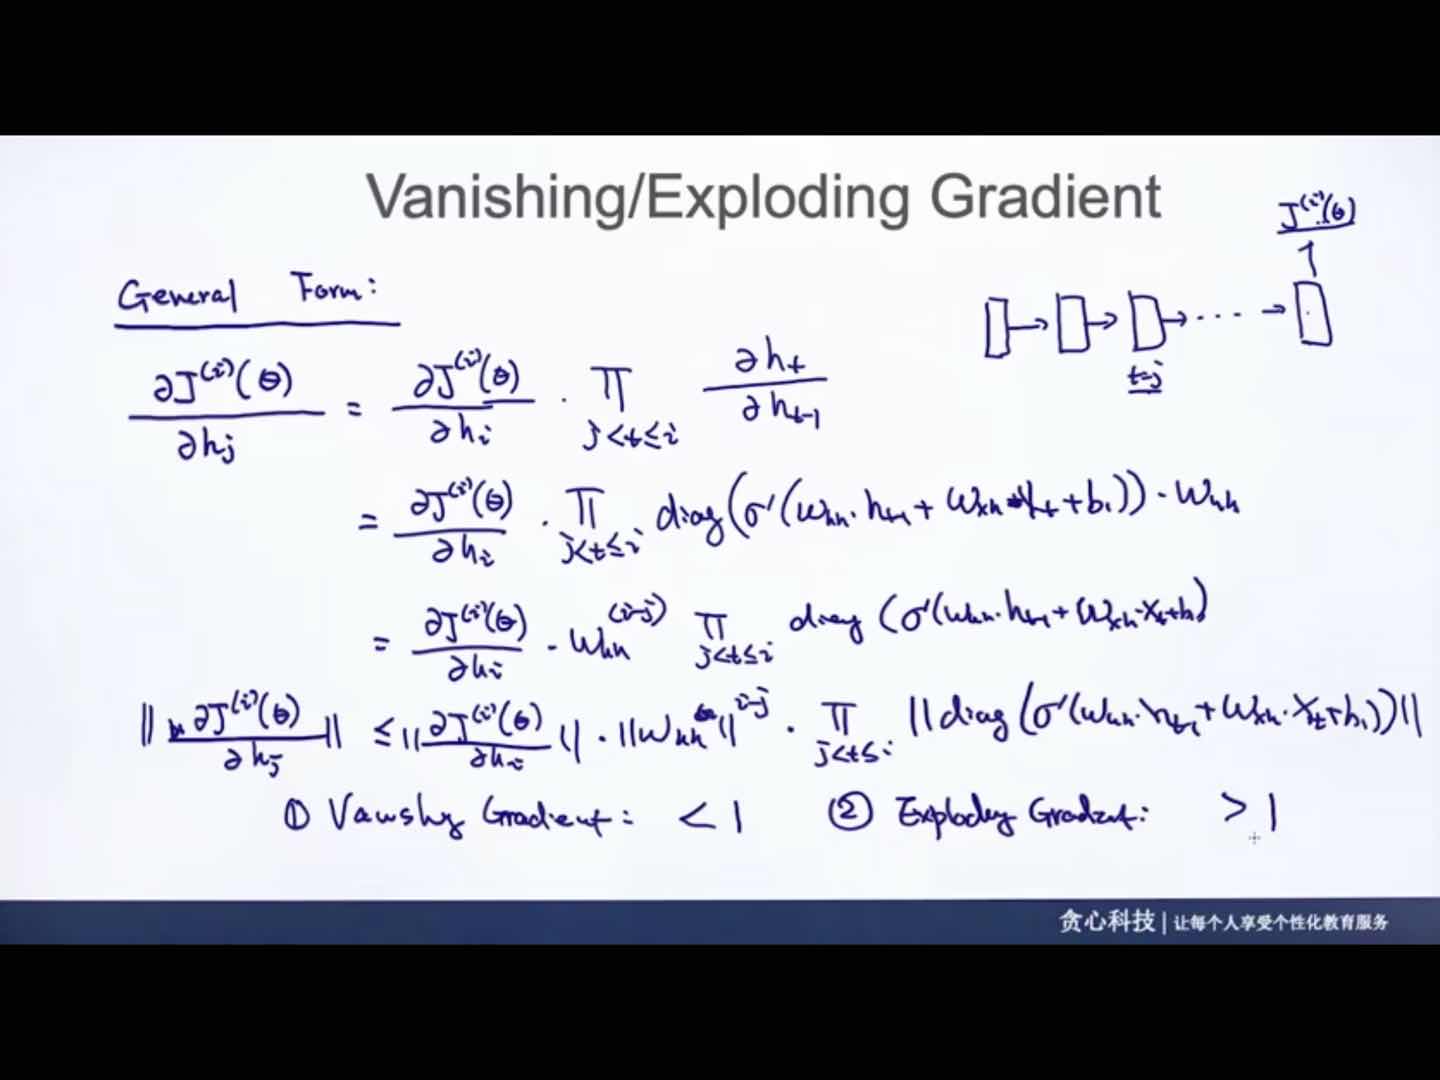 Vanishing/Exploding Gradient
J^(i)(θ)
General Form:
t=j
∂J^(i)(θ)/∂h_j = ∂J^(i)(θ)/∂h_i · Π_{j<t≤i} ∂h_t/∂h_{t-1}
= ∂J^(i)(θ)/∂h_i · Π_{j<t≤i} diag(σ'(W_hh·h_{t-1} + W_xh·x_t + b_1))·W_hh
= ∂J^(i)(θ)/∂h_i · W_hh^(i-j) Π_{j<t≤i} diag(σ'(W_hh·h_{t-1} + W_xh·x_t + b_1)
||∂J^(i)(θ)/∂h_j|| ≤ ||∂J^(i)(θ)/∂h_i|| · ||W_hh||^{i-j} · Π_{j<t≤i} ||diag(σ'(W_hh·h_{t-1} + W_xh·x_t + b_1))||
① Vanishing Gradient: < 1 ② Exploding Gradient: > 1
贪心科技 | 让每个人享受个性化教育服务